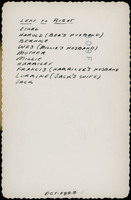 LEFT TO RIGHT
ETHEL
HAROLD (BEA'S HUSBAND)
BERNICE
WES (MILLIE'S HUSBAND)
MOTHER
MILLIE
HARRIET
FRANCIS (HARRIET'S HUSBAND
LORRAINE (JACK'S WIFE)
JACK
OCT-1958